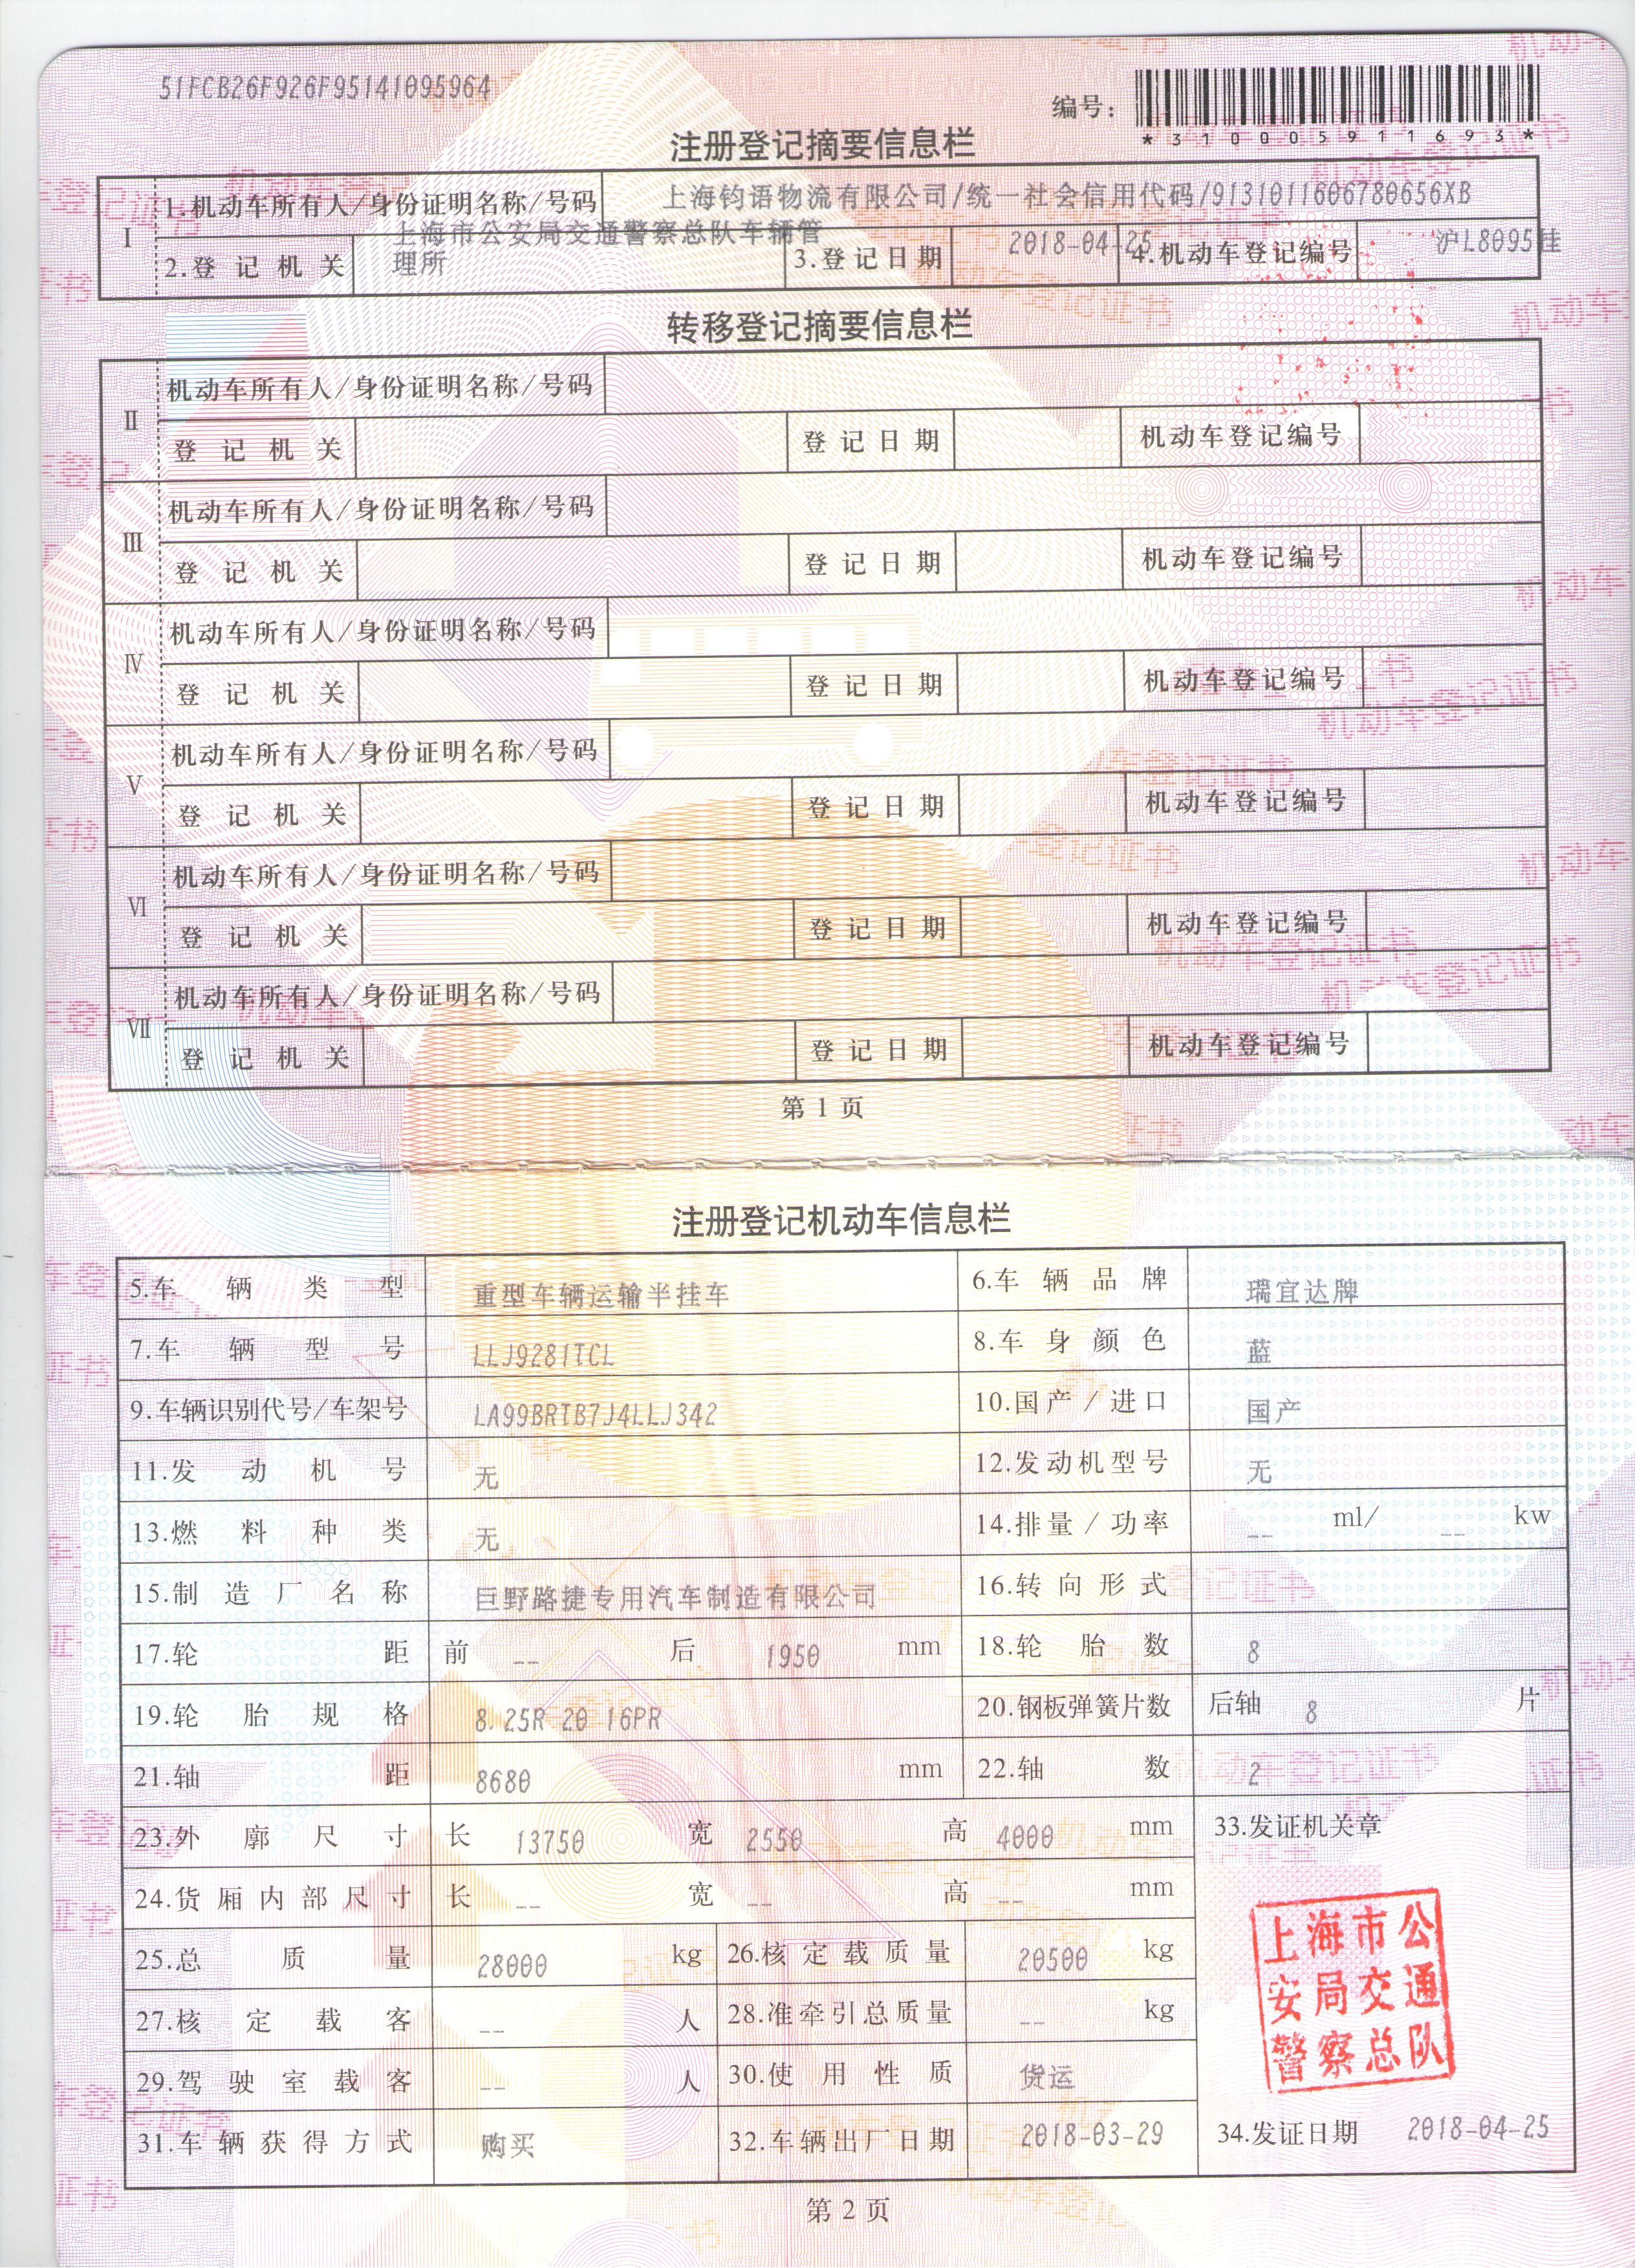 51FCB26F926F95141095964
编号:
*310005911693*
注册登记摘要信息栏
I
1.机动车所有人/身份证明名称/号码 上海钧语物流有限公司/统一社会信用代码/9131011606780656XB
2.登记机关 上海市公安局交通警察总队车辆管理所 3.登记日期 2018-04-25 4.机动车登记编号 沪L8095挂
转移登记摘要信息栏
II
机动车所有人/身份证明名称/号码
登记机关 登记日期 机动车登记编号
III
机动车所有人/身份证明名称/号码
登记机关 登记日期 机动车登记编号
IV
机动车所有人/身份证明名称/号码
登记机关 登记日期 机动车登记编号
V
机动车所有人/身份证明名称/号码
登记机关 登记日期 机动车登记编号
VI
机动车所有人/身份证明名称/号码
登记机关 登记日期 机动车登记编号
VII
机动车所有人/身份证明名称/号码
登记机关 登记日期 机动车登记编号
第 1 页
注册登记机动车信息栏
5.车辆类型 重型车辆运输半挂车 6.车辆品牌 瑞宜达牌
7.车辆型号 LLJ9281TCL 8.车身颜色 蓝
9.车辆识别代号/车架号 LA99BRTB7J4LLJ342 10.国产/进口 国产
11.发动机号 无 12.发动机型号 无
13.燃料种类 无 14.排量/功率 -- ml/ -- kw
15.制造厂名称 巨野路捷专用汽车制造有限公司 16.转向形式
17.轮距 前 -- 后 1950 mm 18.轮胎数 8
19.轮胎规格 8.25R 20 16PR 20.钢板弹簧片数 后轴 8 片
21.轴距 8680 mm 22.轴数 2
23.外廓尺寸 长 13750 宽 2550 高 4000 mm 33.发证机关章
24.货厢内部尺寸 长 -- 宽 -- 高 -- mm
25.总质量 28000 kg 26.核定载质量 20500 kg
27.核定载客 -- 人 28.准牵引总质量 -- kg
29.驾驶室载客 -- 人 30.使用性质 货运
上海市公
安局交通
警察总队
31.车辆获得方式 购买 32.车辆出厂日期 2018-03-29 34.发证日期 2018-04-25
第 2 页